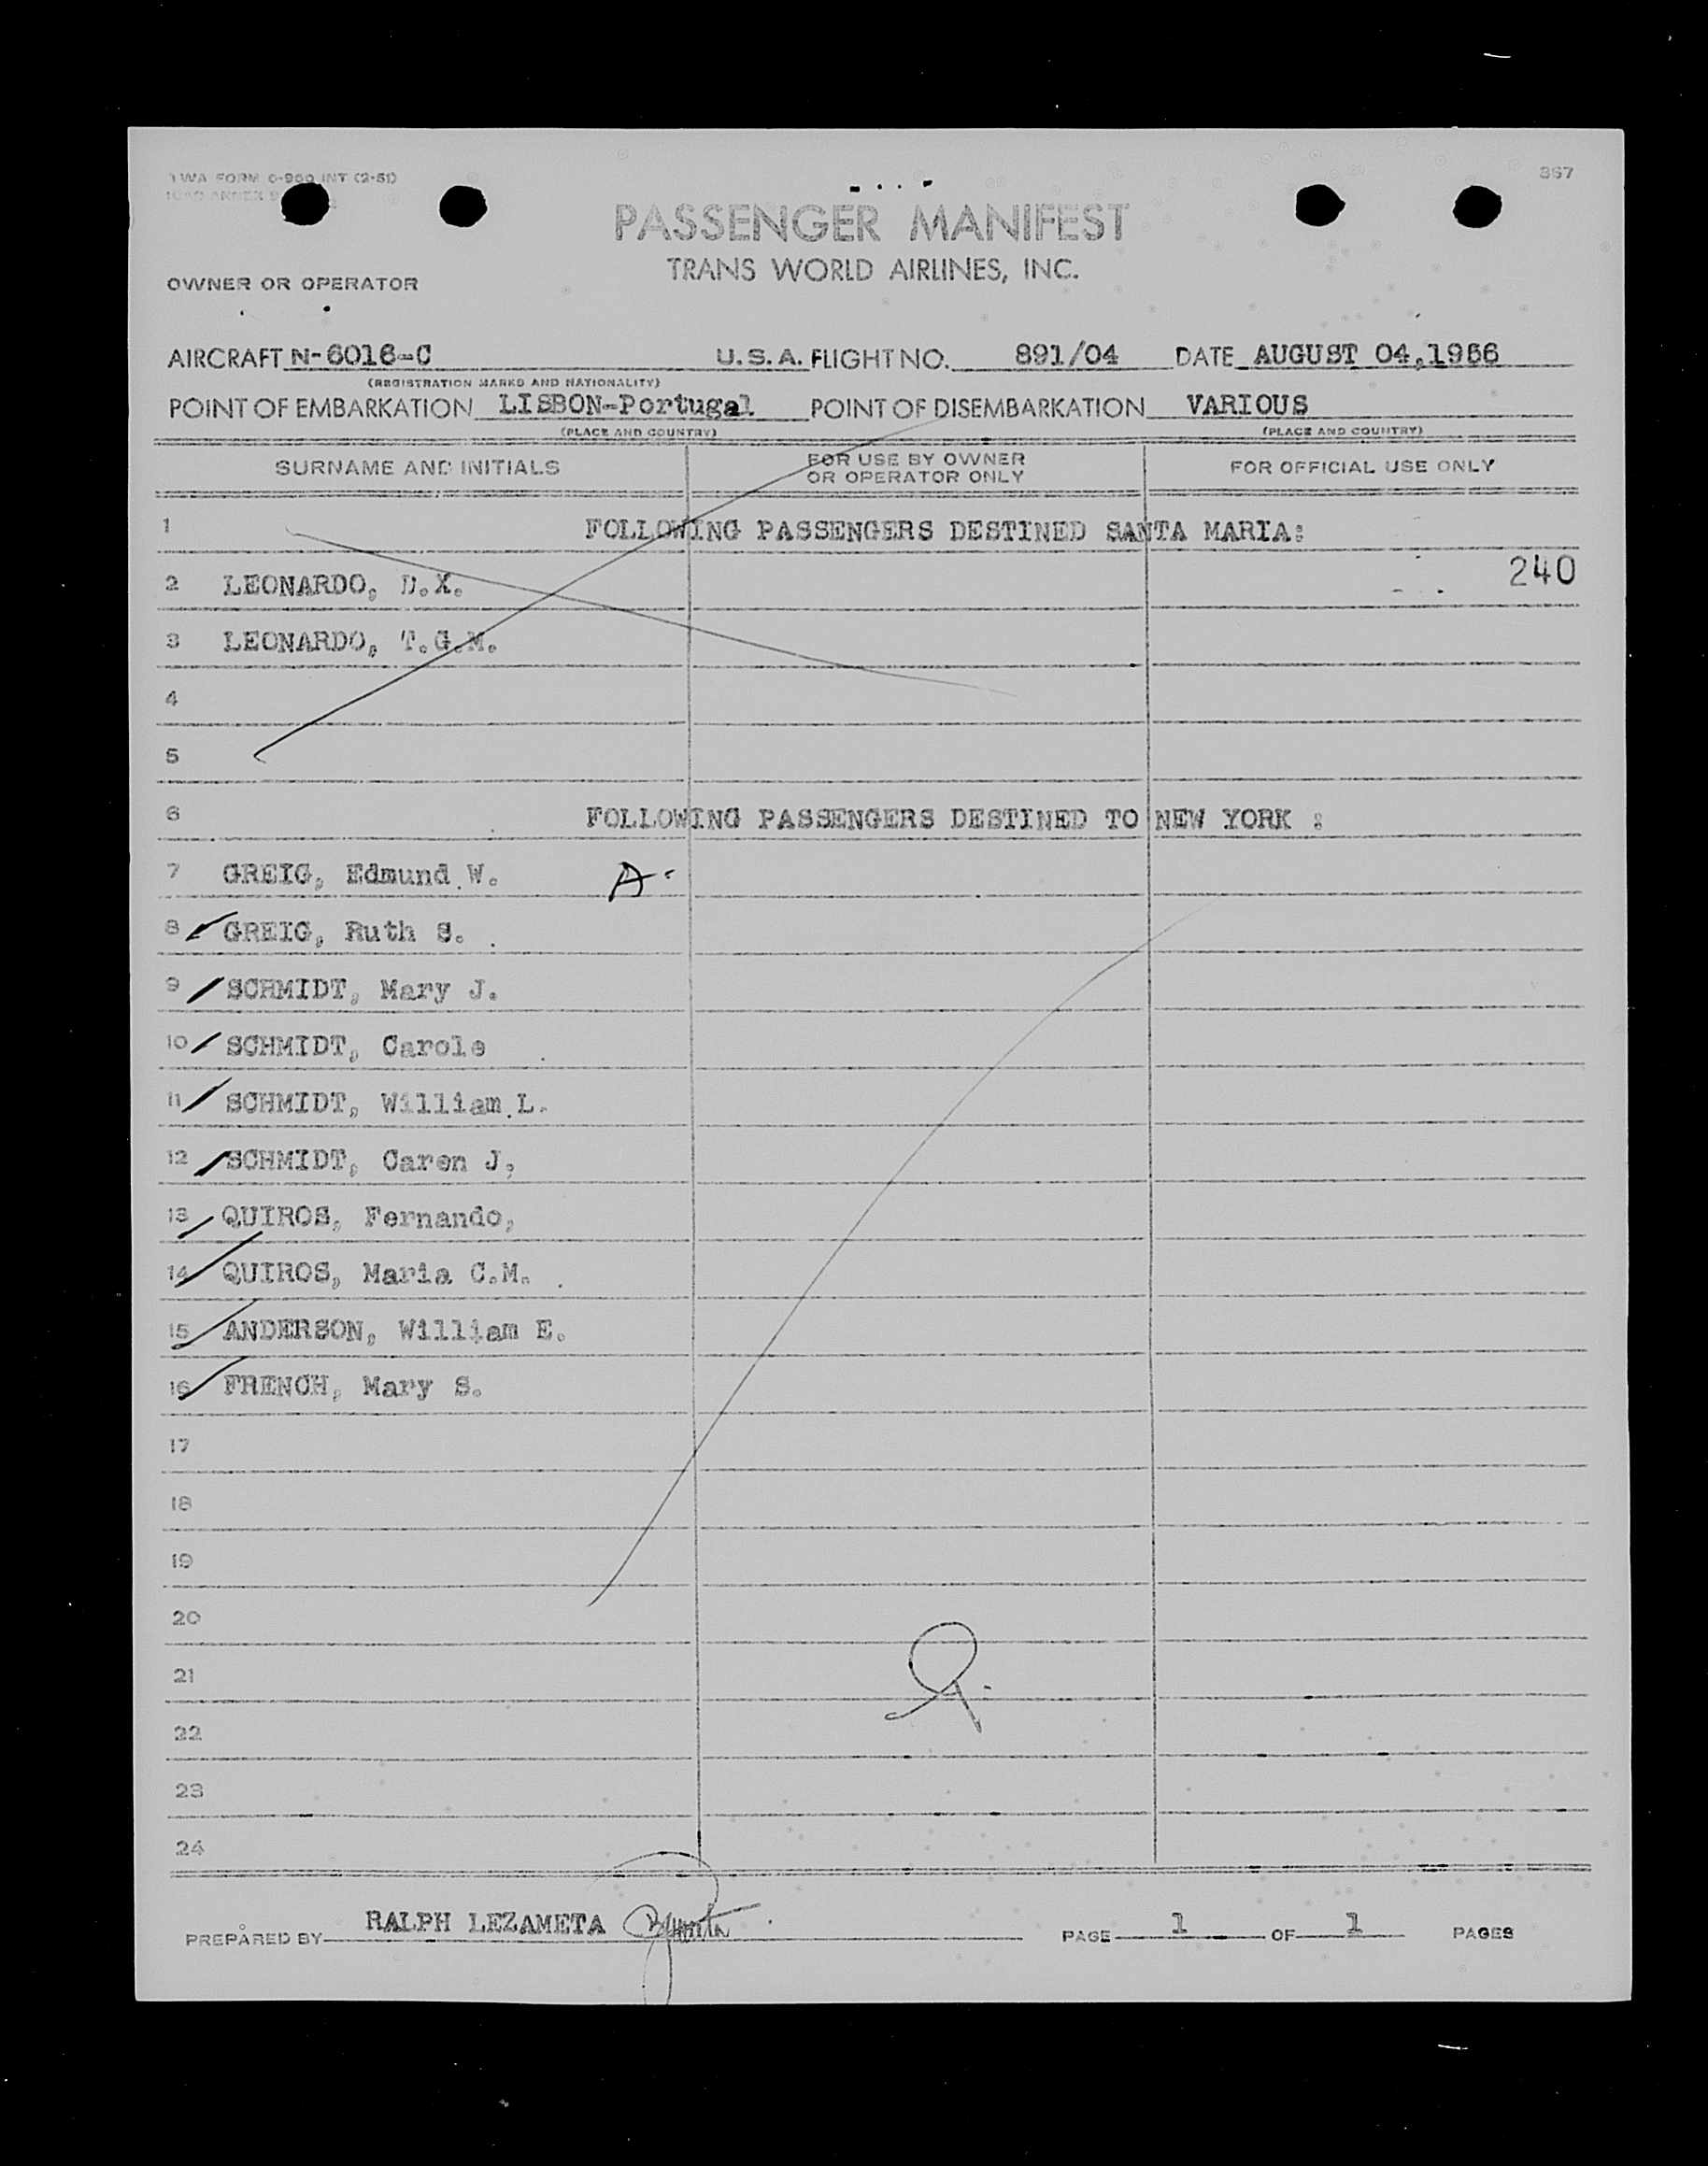 TWA FORM 0-960 INT (2-51)
367
PASSENGER MANIFEST
TRANS WORLD AIRLINES, INC.
OWNER OR OPERATOR
AIRCRAFT N-6016-C U.S.A. FLIGHT NO. 891/04 DATE AUGUST 04,1956
(REGISTRATION MARKS AND NATIONALITY)
POINT OF EMBARKATION LISBON-Portugal POINT OF DISEMBARKATION VARIOUS
(PLACE AND COUNTRY) (PLACE AND COUNTRY)
SURNAME AND INITIALS FOR USE BY OWNER OR OPERATOR ONLY FOR OFFICIAL USE ONLY
1 FOLLOWING PASSENGERS DESTINED SANTA MARIA:
240
2 LEONARDO, D.X.
3 LEONARDO, T.G.M.
4
5
6 FOLLOWING PASSENGERS DESTINED TO NEW YORK :
7 GREIG, Edmund W. A
8 GREIG, Ruth S.
9 SCHMIDT, Mary J.
10 SCHMIDT, Carole
11 SCHMIDT, William L.
12 SCHMIDT, Caren J,
13 QUIROS, Fernando,
14 QUIROS, Maria C.M.
15 ANDERSON, William E.
16 FRENCH, Mary S.
17
18
19
20
21
22
23
24
PREPARED BY RALPH LEZAMETA PAGE 1 OF 1 PAGES